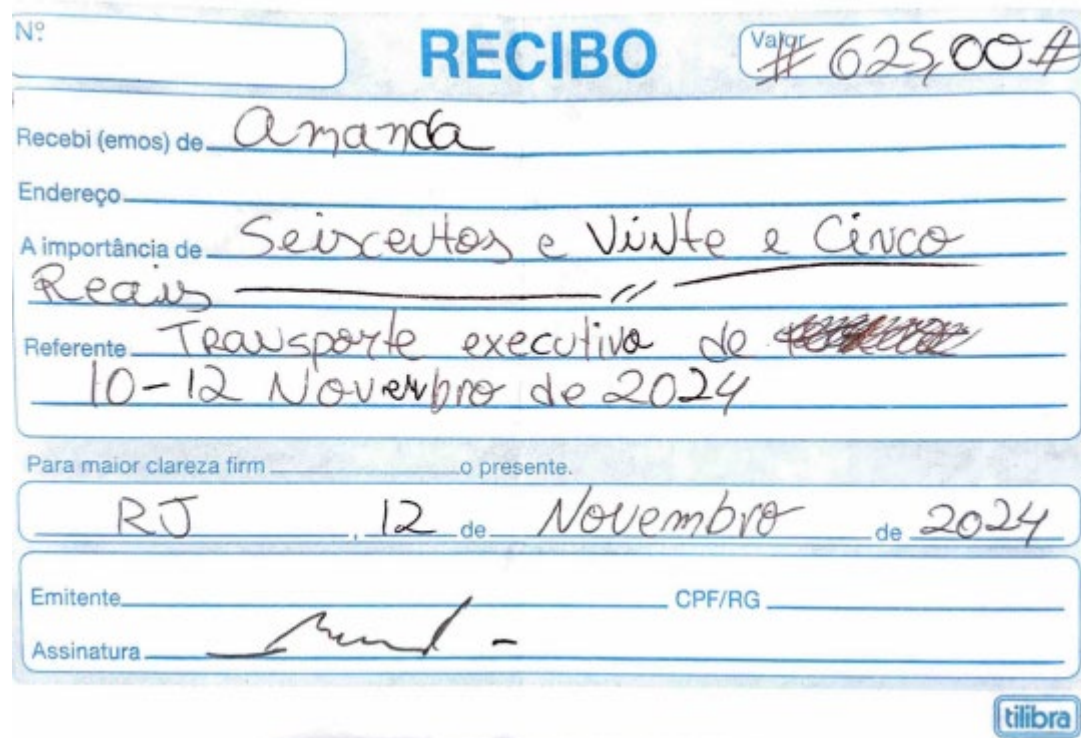 Nº RECIBO Valor #625,00#
Recebi (emos) de Amanda
Endereço
A importância de Seiscentos e Vinte e Cinco
Reais
Referente Transporte executivo de
10-12 Novembro de 2024
Para maior clareza firm o presente.
RJ, 12 de Novembro de 2024
Emitente CPF/RG
Assinatura
tilibra